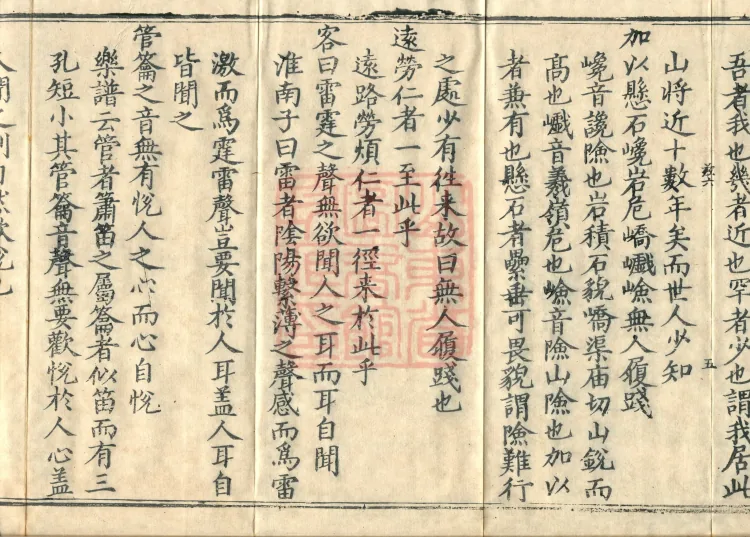 吾者我也幾者近也罕者少也謂我居此
山將近十數年矣而世人少知
加以懸石巉岩危嶠巇嶮無人履踐
巉音讒險也岩積石貌嶠渠庙切山銳而
髙也巇音羲嶺危也嶮音險山險也加以
者兼有也懸石者纍垂可畏貌謂險難行
之處少有徃来故曰無人履踐也
遠勞仁者一至此乎
遠路勞煩仁者一徑来於此乎
客曰雷霆之聲無欲聞人之耳而耳自聞
淮南子曰雷者陰陽擊薄之聲感而爲雷
激而爲霆雷聲豈要聞於人耳盖人耳自
皆聞之
管籥之音無有悅人之心而心自悅
樂譜云管者簫笛之屬籥者似笛而有三
孔短小其管籥音聲無要歡悅於人心盖
五